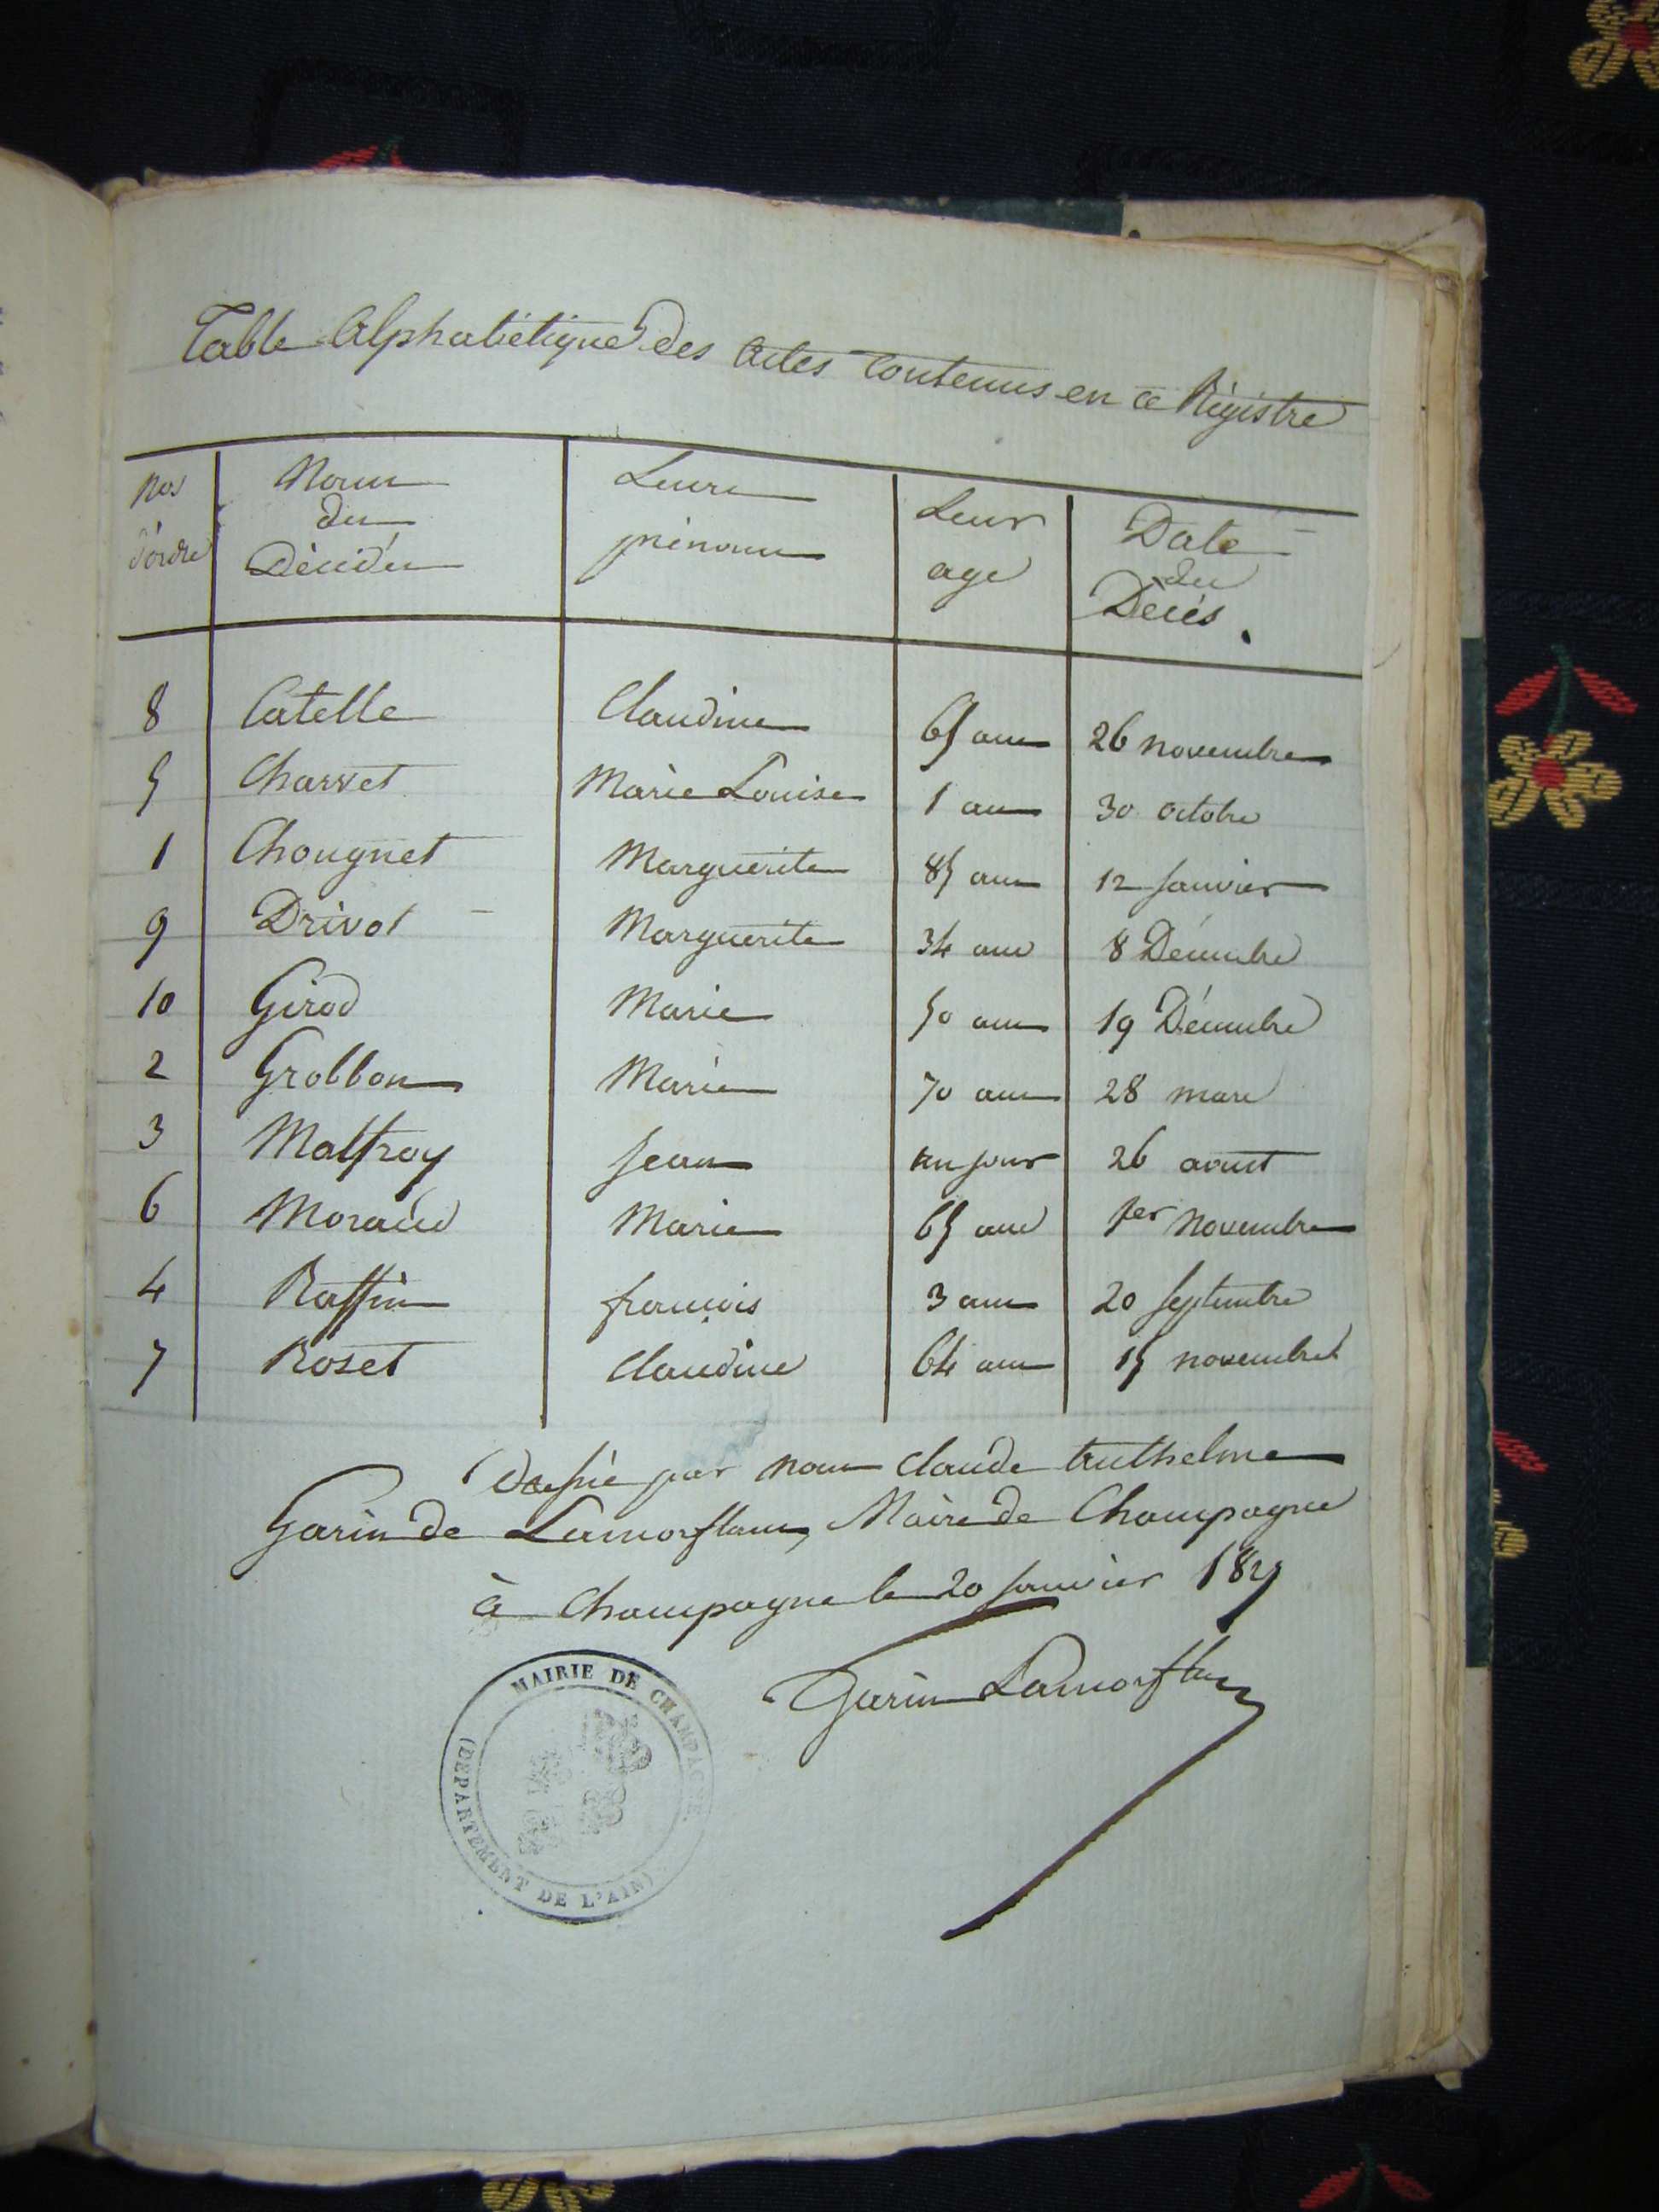 Table Alphabétique des Actes Contenus en ce Régistre
Nos d'ordre | Noms des Décédés | Leurs prénoms | Leur age | Date du Décés.
8 Catelle Claudine 65 ans 26 novembre
5 Charvet Marie Louise 1 an 30 octobre
1 Chougnet Marguerite 85 ans 12 Janvier
9 Drivot Marguerite 34 ans 8 Décembre
10 Girod Marie 50 ans 19 Décembre
2 Grobbon Marie 70 ans 28 mars
3 Malfroy Jean un jour 26 aoust
6 Moraud Marie 65 ans 1er Novembre
4 Raffin francois 3 ans 20 Septembre
7 Roset Claudine 64 ans 15 novembre
par nous Claude Anthelme
Garin de Lamorflans, Maire de Champagne
à Champagne le 20 Janvier
Garin Lamorflans
MAIRIE DE CHAMPAGNE.
(DEPARTEMENT DE L'AIN)